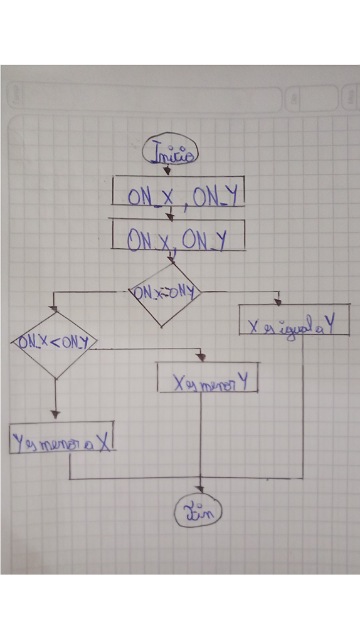 Inicio
ON_X, ON_Y
ON_X, ON_Y
ON_X=ON_Y
X es igual a Y
ON_X<ON_Y
X es menor Y
Y es menor a X
Fin